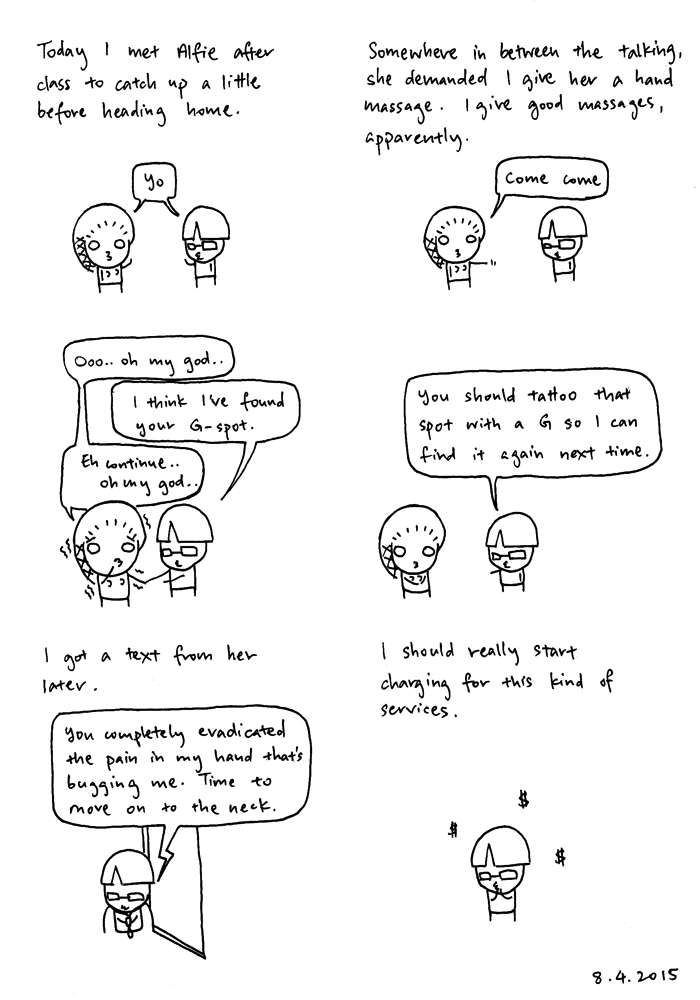 Today I met Alfie after
class to catch up a little
before heading home.
Yo
Somewhere in between the talking,
she demanded I give her a hand
massage. I give good massages,
apparently.
Come come
Ooo.. oh my god..
I think I've found
your G-spot.
Eh continue..
oh my god..
You should tattoo that
spot with a G so I can
find it again next time.
I got a text from her
later.
You completely eradicated
the pain in my hand that's
bugging me. Time to
move on to the neck.
I should really start
charging for this kind of
services.
$
$
$
8.4.2015